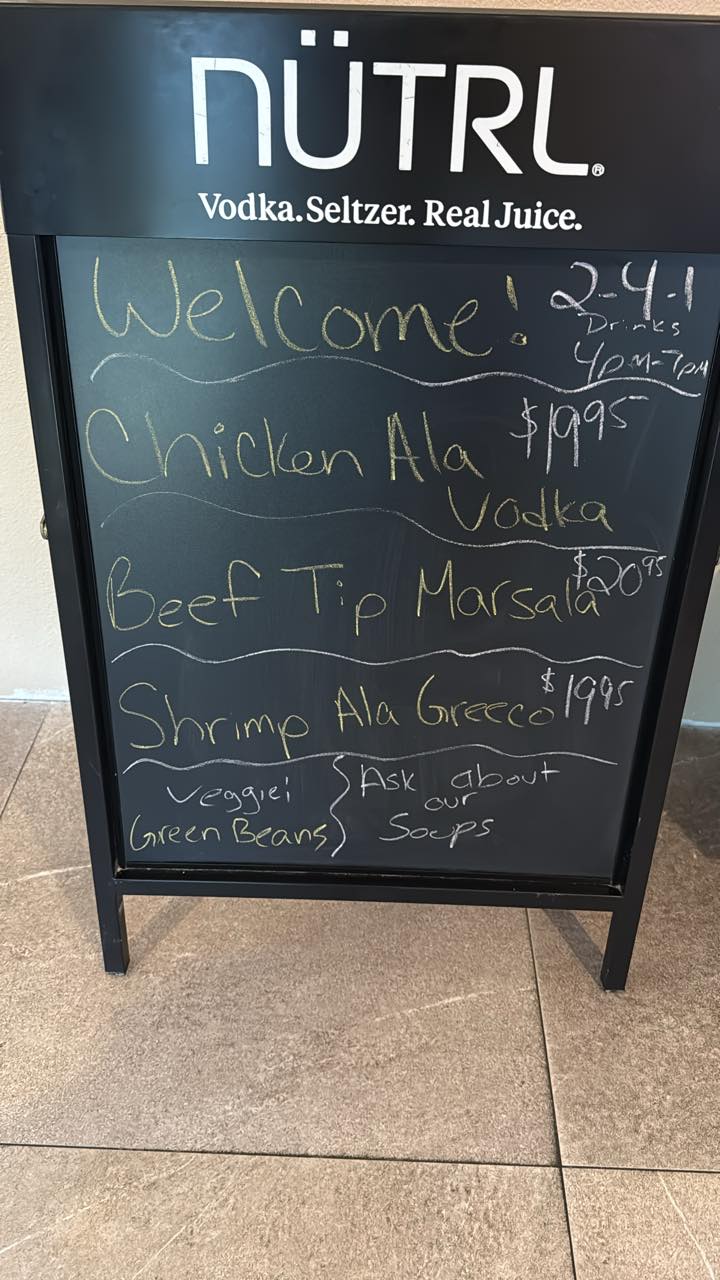 NÜTRL®
Vodka. Seltzer. Real Juice.
Welcome!
2-4-1
Drinks
4pm-7pm
Chicken Ala
Vodka
$1995
Beef Tip Marsala
$2095
Shrimp Ala Greeco
$1995
Veggie!
Green Beans
Ask about
our
Soups